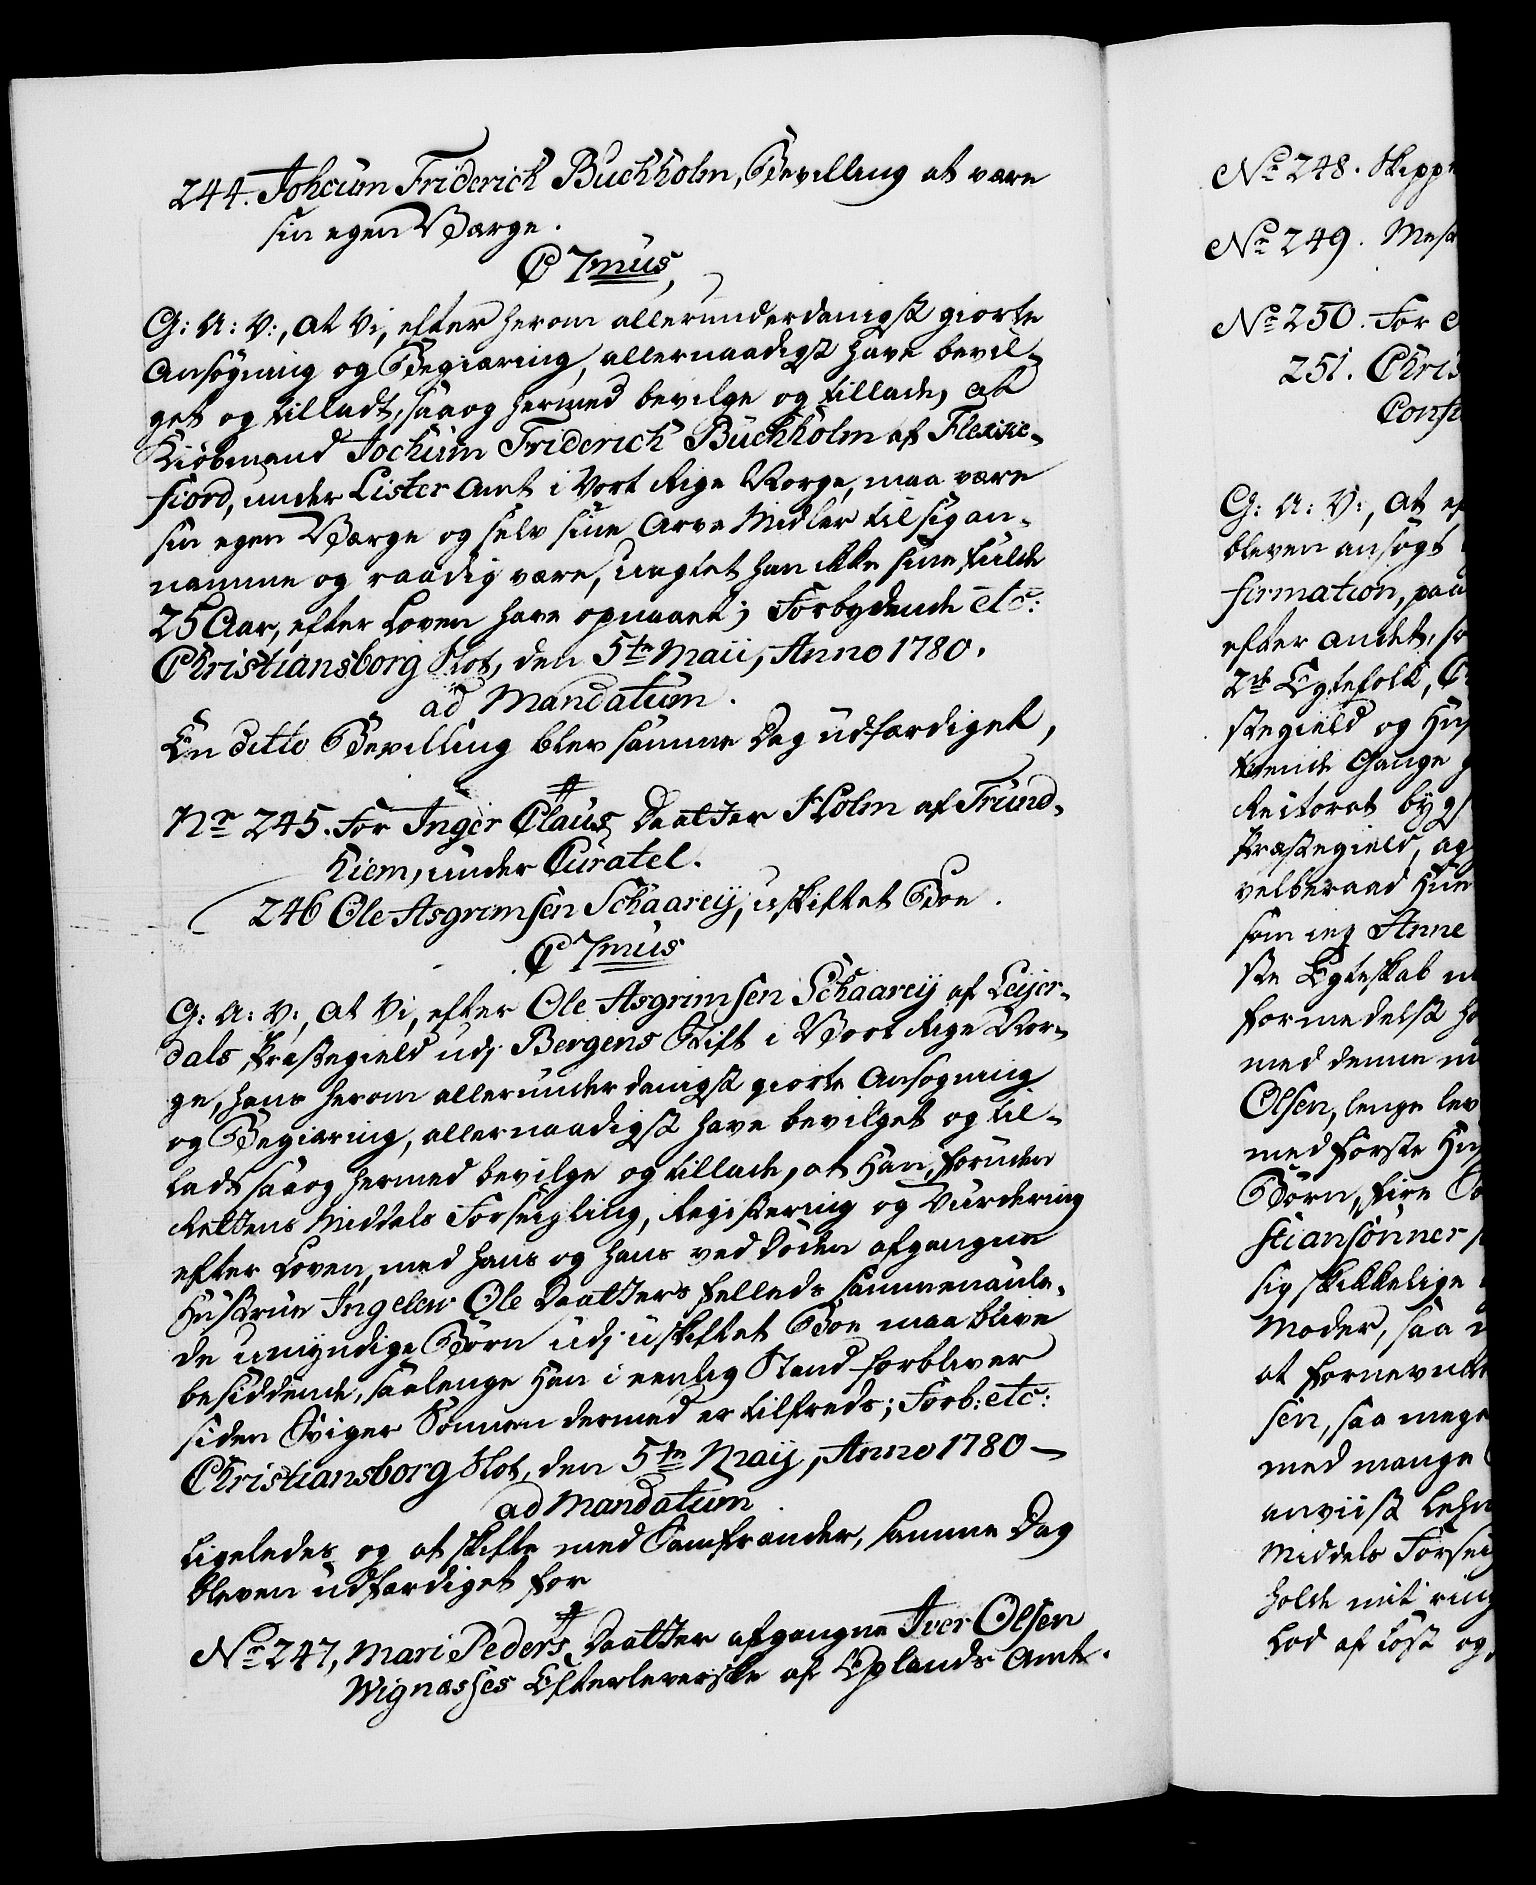 244. Johcum Friderich Buchholm, Bevilling at være
sin egen Værge.
C 7mus,
G: A: V:, at Vi, efter herom allerunderdanigst giorte
Ansøgning og Begiæring, allernaadigst have bevil-
get og tilladt, saa og hermed bevilge og tillade, at
Kiöbmand Jochum Friderich Buchholm af Flekke-
fiord, under Lister Amt i Vort Rige Norge, maa være
sin egen Værge og selv sine Arve Midler til sig an-
namme og raadig være, uagtet han ikke sine fulde
25 Aar, efter Loven have opnaaet; Forbydende etc:
Christiansborg Slot, den 5te Maii, Anno 1780.
ad Mandatum.
En ditto Bevilling blev samme Dag udfærdiget,
Nr 245. For Inger Claus Daatter Holm af Trund-
hiem, under Curatel.
246 Ole Asgrimsen Schaareij, uskiftet Boe.
C 7mus
G: A: V:, at Vi, efter Ole Asgrimsen Schaareij af Leijer-
dals Præstegield udj Bergens Stift i Vort Rige Nor-
ge, hans herom allerunderdanigst giorte Ansøgning
og Begiæring, allernaadigst have bevilget og til-
ladt saa og hermed bevilge og tillade, at Han, foruden
Rettens Middels Forseigling, Registering og Vurdering
efter Loven, med hans og hans ved Döden afgangne
Hustrue Ingelew Ole Daatters fælleds sammenaule-
de umyndige Börn udj uskiftet Boe maa blive
besiddende, saalenge Han i eenlig Stand forbliver
siden Sviger Sönnen dermed er tilfreds; Forb: etc:
Christiansborg Slot, den 5te Maij, Anno 1780
ad Mandatum
Ligeledes og at skifte med Samfrænder, samme Dag
bleven udfærdiget for
No 247, Mari Peders Daatter afgangne Iver Olsen
Wignæsses Efterleverske af Oplands Amt.
No 248. Skippe
No 249. Mest
No 250. For
251. Chris
Confi
G: A: V:, at ef
bleven ansøgt
firmation, paa
efter andet,
2de Egtefolk,
stegield og Hus
Gange
Rectorat byg
Præstegield, og
velberaad Hue
som ieg Anne
ste Egteskab
formedelst
med denne
Olsen, lenge lev
med förste Hu
Börn, fire
stiansönner
sig skikkelige
Moder, saa
at fornevnte
sen, saa mege
med mange
anviist
Middels Forseig
holde mit ring
Lod af Löst og